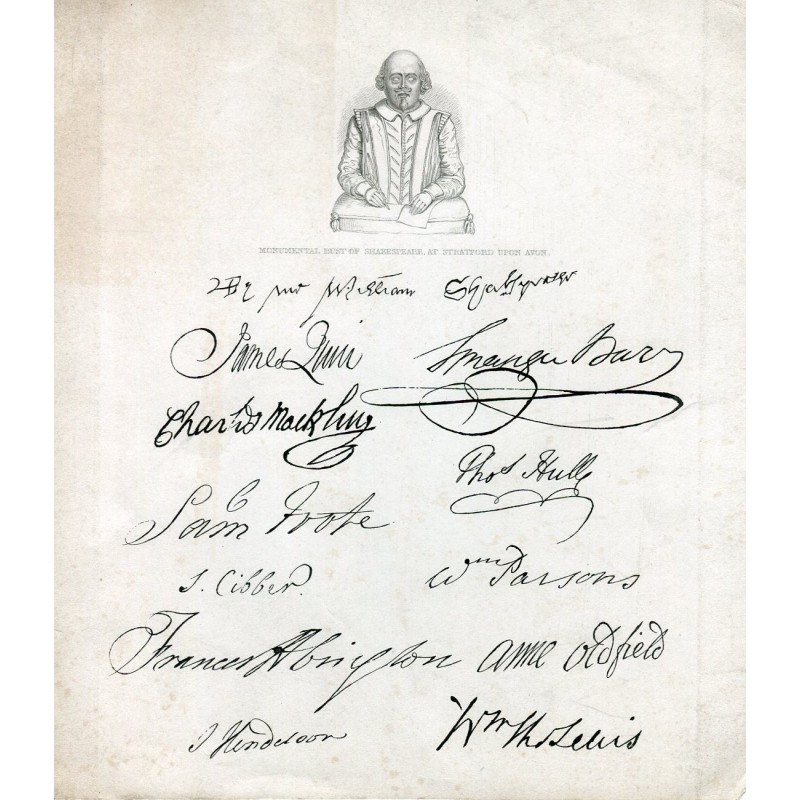 MONUMENTAL BUST OF SHAKESPEARE, AT STRATFORD UPON AVON.
By me William Shakspeare
James Quin Spranger Barry
Charles Macklin
Thos Hull
Sam Foote
S. Cibber. Wm Parsons
Frances Abington anne oldfield
J Henderson Wm Thos Lewis